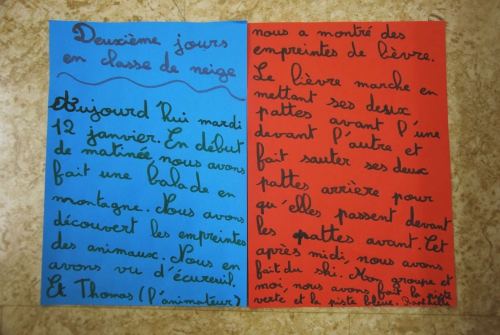 Deuxième jours
en classe de neige
Aujourd'hui mardi
12 janvier. En début
de matinée nous avons
fait une balade en
montagne. Nous avons
découvert les empreintes
des animaux. Nous en
avons vu d'écureuil.
Et Thomas (l'animateur)
nous a montré des
empreintes de lièvre.
Le lièvre marche en
mettant ses deux
pattes avant l'une
devant l'autre et
fait sauter ses deux
pattes arrière pour
qu'elles passent devant
les pattes avant. Cet
après midi, nous avons
fait du ski. Mon groupe et
moi, nous avons fait la piste
verte et la piste bleue. Raphaëlle